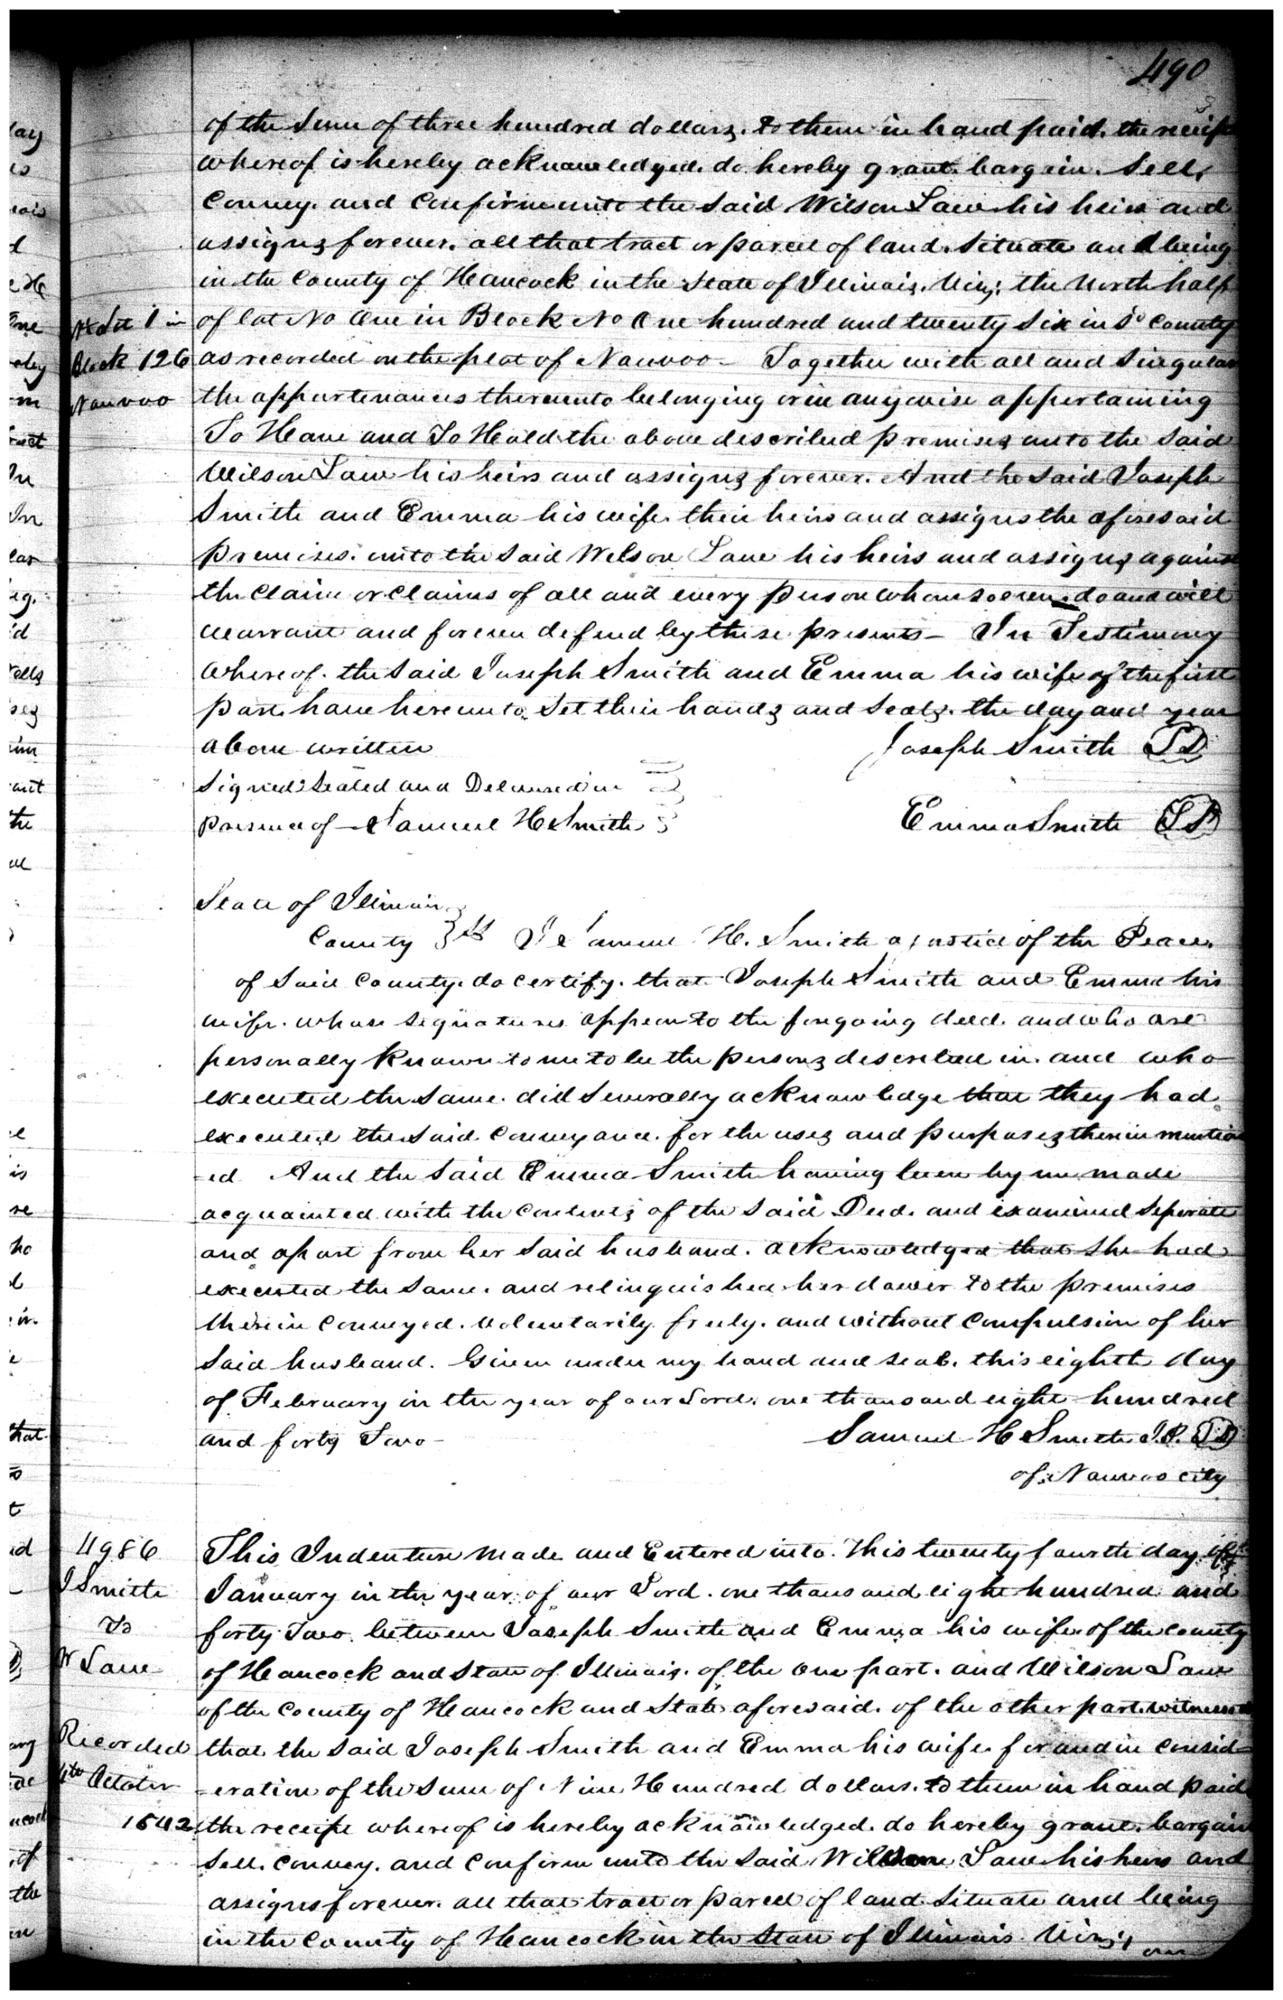 490
of the Sum of three hundred dollars. to them in hand paid. the receipt
whereof is hereby acknowledged. do hereby grant. bargain. Sell,
Convey. and Confirm unto the Said Wilson Law his heirs and
assigns forever. all that tract or parcel of land. Situate and being
in the County of Hancock in the State of Illinois. Viz; the North half
of lot No One in Block No One hundred and twenty Six in sd County
as recorded on the plat of Nauvoo - Together with all and Singular
the appurtenances thereunto belonging or in anywise appertaining
To Have and To Hold the above described premises unto the Said
Wilson Law his heirs and assigns forever. And the Said Joseph
Smith and Emma his wife. their heirs and assigns the aforesaid
premises. unto the Said Wilson Law his heirs and assigns against
the Claim or Claims of all and every person whomsoever. do and will
warrant and forever defend by these presents - In Testimony
whereof. the Said Joseph Smith and Emma his wife of the first
part. have hereunto Set their hands and Seals. the day and year
above written
Joseph Smith
Signed Sealed and Delivered in
presence of - Samuel H Smith
Emma Smith
N ½ Lot 1 in
Block 126
Nauvoo
State of Illinois
County ss I Samuel H. Smith a justice of the Peace.
of Said County. do certify. that Joseph Smith and Emma his
wife. whose signatures appear to the forgoing deed. and who are
personally known to me to be the persons described in. and who
executed the Same. did Severally acknowledge that they had
executed the Said Conveyance. for the uses and purposes therein mention
-ed And the Said Emma Smith having been by me made
acquainted with the contents of the Said Deed. and examined Seperate
and apart from her Said husband. acknowledged that She had
executed the Same. and relinquished her dower to the premises
therein Conveyed. voluntarily freely. and without Compulsion of her
Said husband. Given under my hand and seal. this eighth day
of February in the year of our Lord. one thousand eight hundred
and forty Two -
Samuel H Smith J.P.
of Nauvoo city
4986
J Smith
To
W Law
Recorded
4th October
1842
This Indenture Made and Entered into. This twenty fourth day of
January in the year of our Lord. one thousand eight hundred and
forty Two. between Joseph Smith and Emma his wife of the county
of Hancock and State of Illinois. of the one part. and Wilson Law
of the County of Hancock and State aforesaid. of the other part. witnesseth
that the Said Joseph Smith and Emma his wife. for and in consid
-eration of the Sum of Nine Hundred dollars. to them in hand paid
the receipt whereof is hereby acknowledged. do hereby grant. bargain
Sell. convey. and Confirm unto the Said Wilson Law his heirs and
assigns forever. all that tract or parcel of land Situate and being
in the County of Hancock in the State of Illinois. Viz;